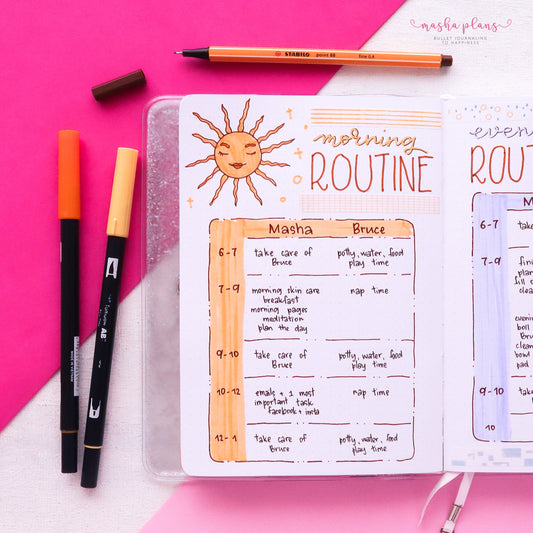 masha plans
BULLET JOURNALING
TO HAPPINESS
STABILO point 88 fine 0,4
morning
ROUTINE
Masha Bruce
6-7 take care of potty, water, food
Bruce play time
7-9 morning skin care nap time
breakfast
morning pages
meditation
plan the day
9-10 take care of potty, water, food
Bruce play time
10-12 emails + 1 most nap time
important task
facebook + insta
12-1 take care of potty, water, food
Bruce play time
even
ROUT
M
6-7 take
7-9 fini
plan
fill
clea
evening
boil
Bru
clean
bowl
pad
9-10 take
10
AB